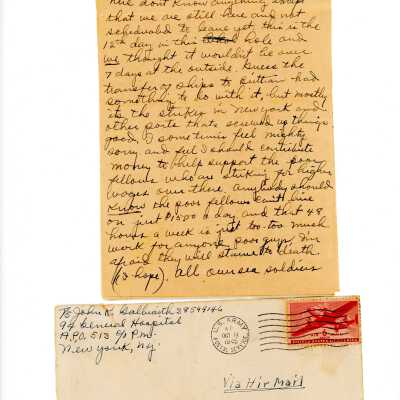 here dont know anything except
that we are still here and not
schedualed to leave yet, this is the
12th day in this hole and
we thought it wouldn't be over
7 days at the outside. Guess the
transfer of ships to
something to do with it, but mostly
its the strikes in New York and
other ports thats screwed up things
good, I sometimes feel mighty
sorry and feel I should contribute
money to help support the poor
fellows who are striking for higher
wages over there, anybody should
know the poor fellows cant live
on just $15.00 a day and that 48
hours a week is just too-too much
work for anyone, poor guys, I'm
afraid they will starve to death.
(I hope). All oversea soldiers
John K. Galbraith 38544146
94 General Hospital
A.P.O. 513 c/o P.M.
New York, N.Y.
U.S. ARMY
OCT
1945
Via Air Mail